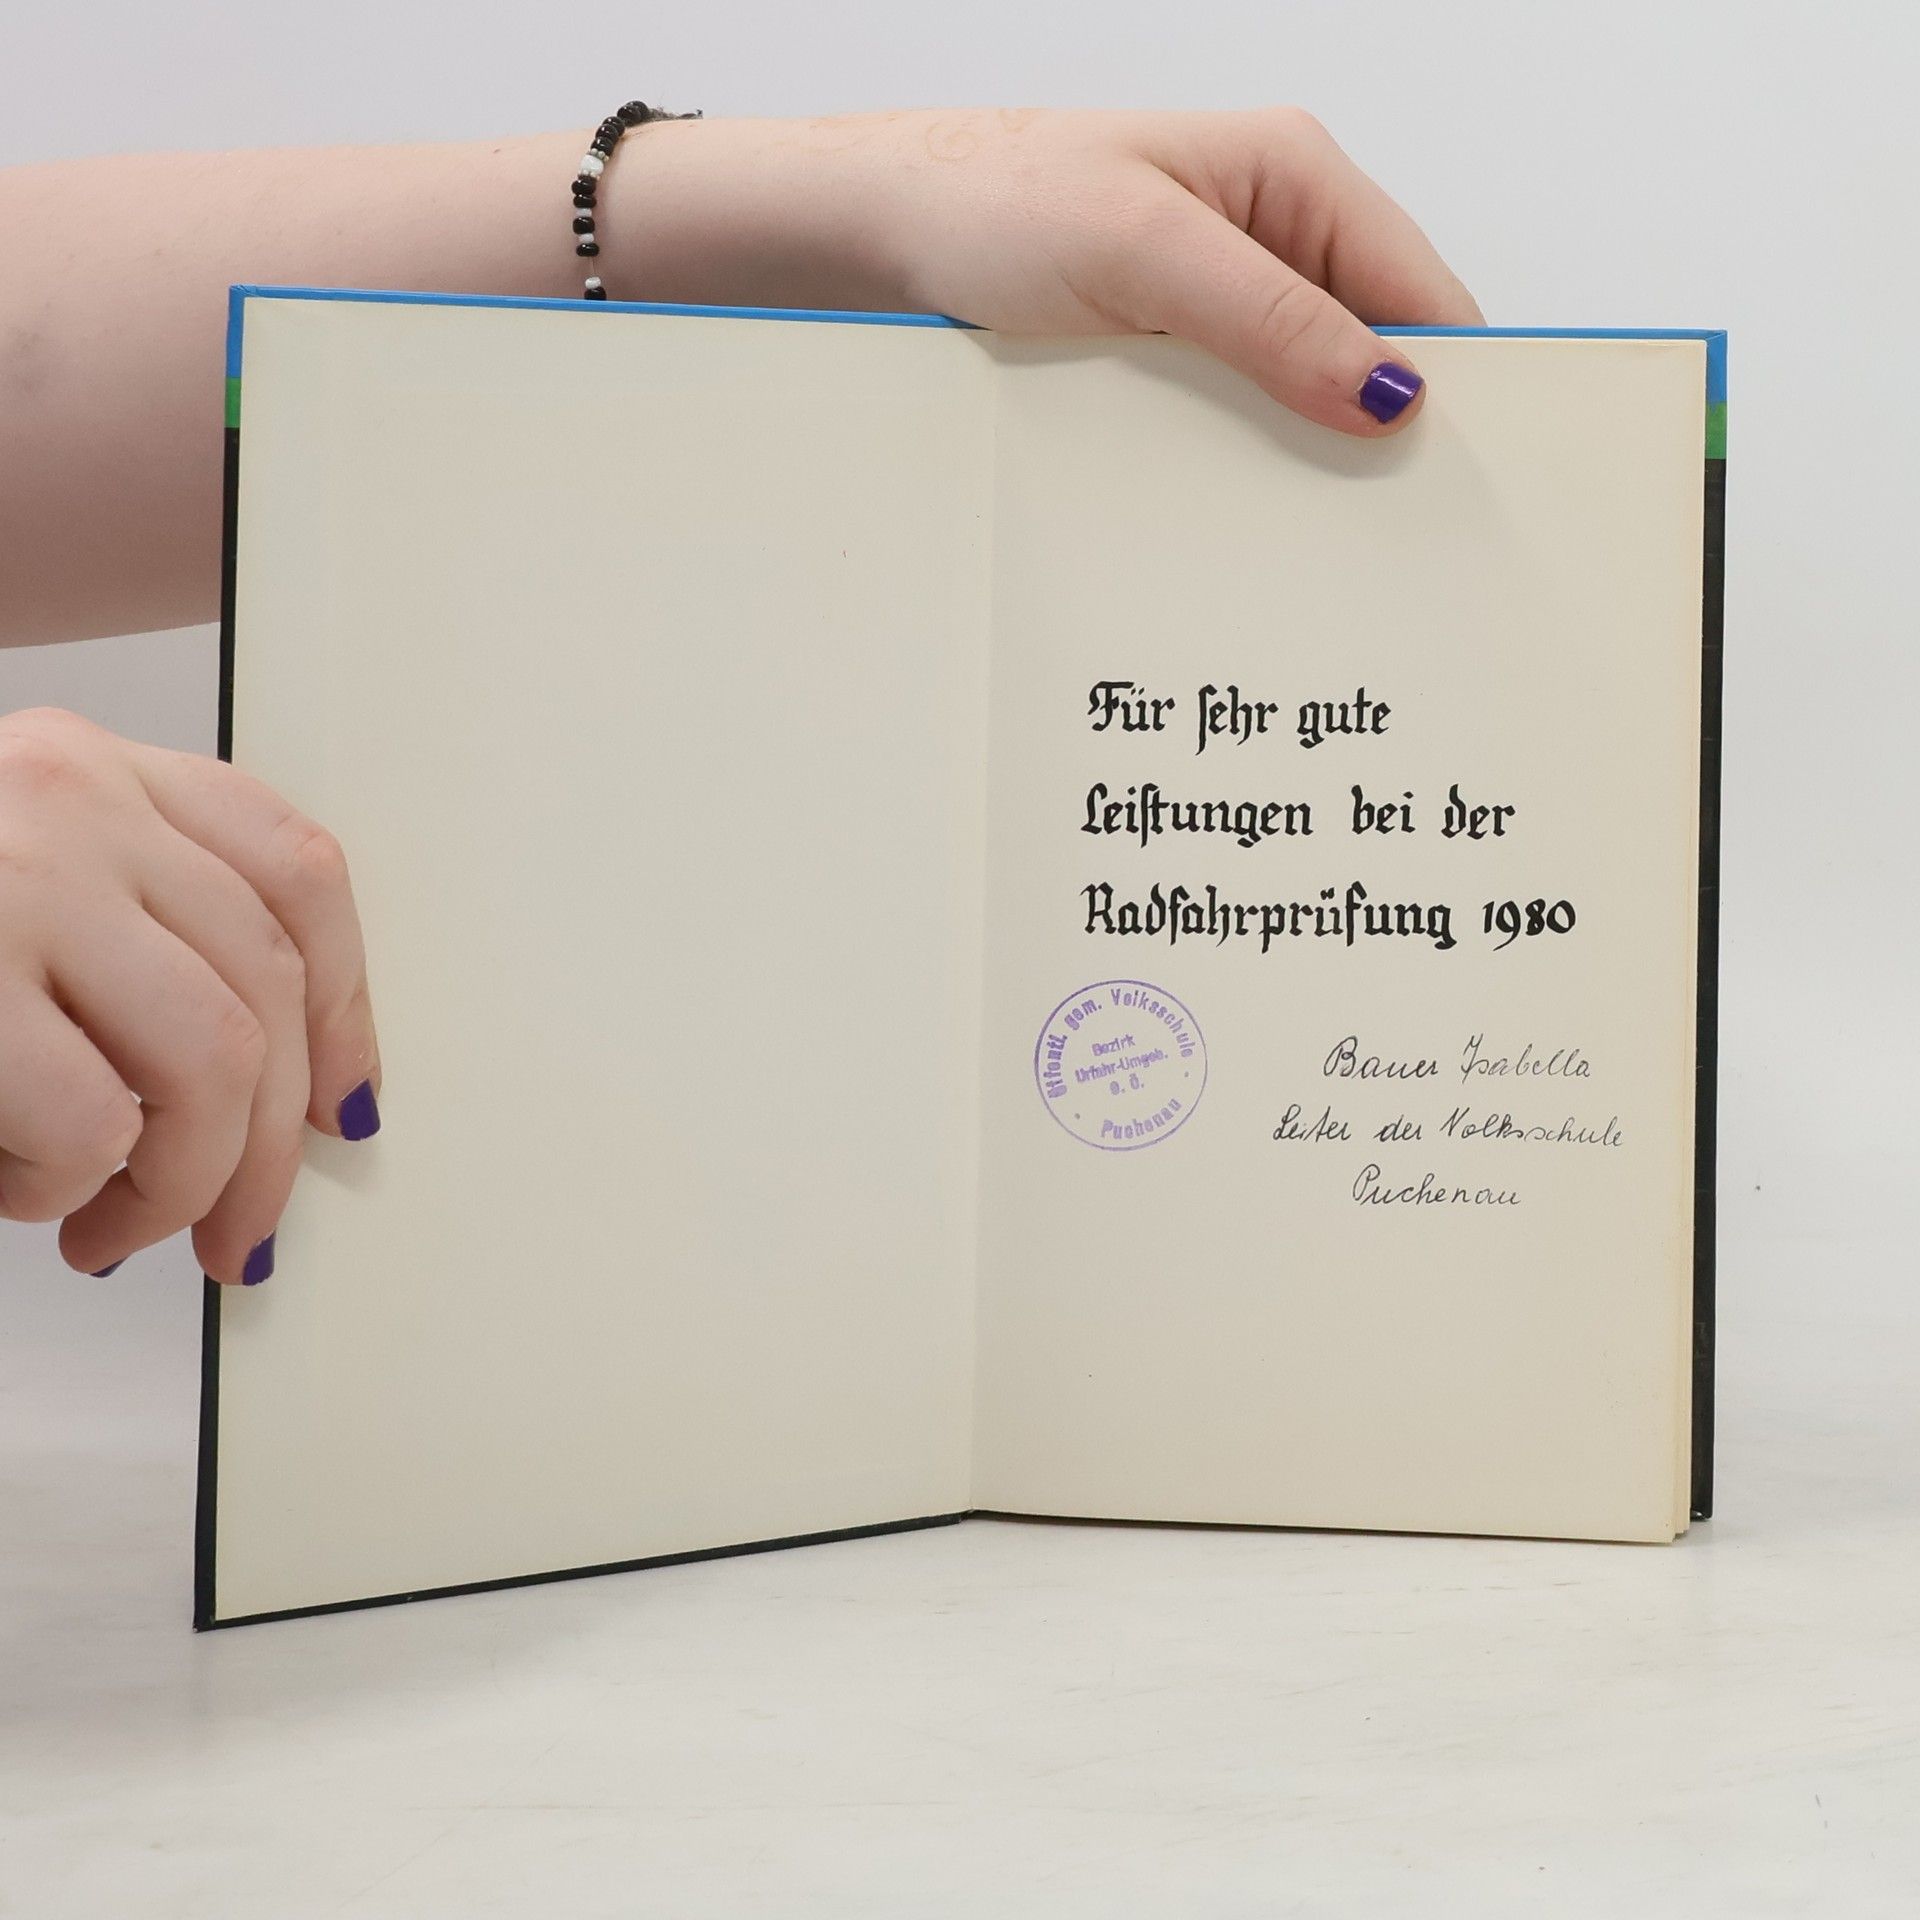 Für sehr gute
Leistungen bei der
Radfahrprüfung 1980
Öffentl. gem. Volksschule
Bezirk
Urfahr-Umgeb.
O. Ö.
Puchenau
Bauer Isabella
Leiter der Volksschule
Puchenau